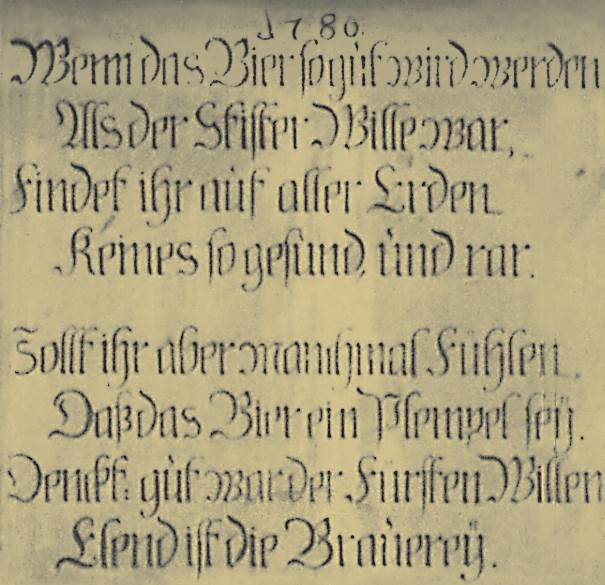 1780.
Wenn das Bier so gùt wird werden
Als der Stifter Wille war,
Findet ihr aùf aller Erden
Keines so gesùnd, ùnd rar.
Sollt ihr aber manchmal Fühlen
Daß das Bier ein Plempel seÿ.
Denkt: gùt war der Fürsten Willen
Elend ist die Braùereÿ.